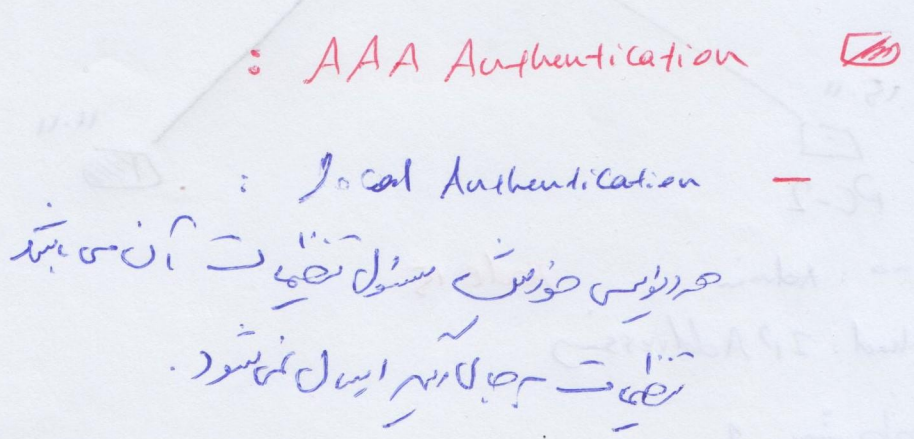 AAA Authentication :
– Local Authentication :
هر دیوایس خودش مسئول تنظیمات آن می باشد
تنظیمات به جای دیگر ارسال نمی شود.